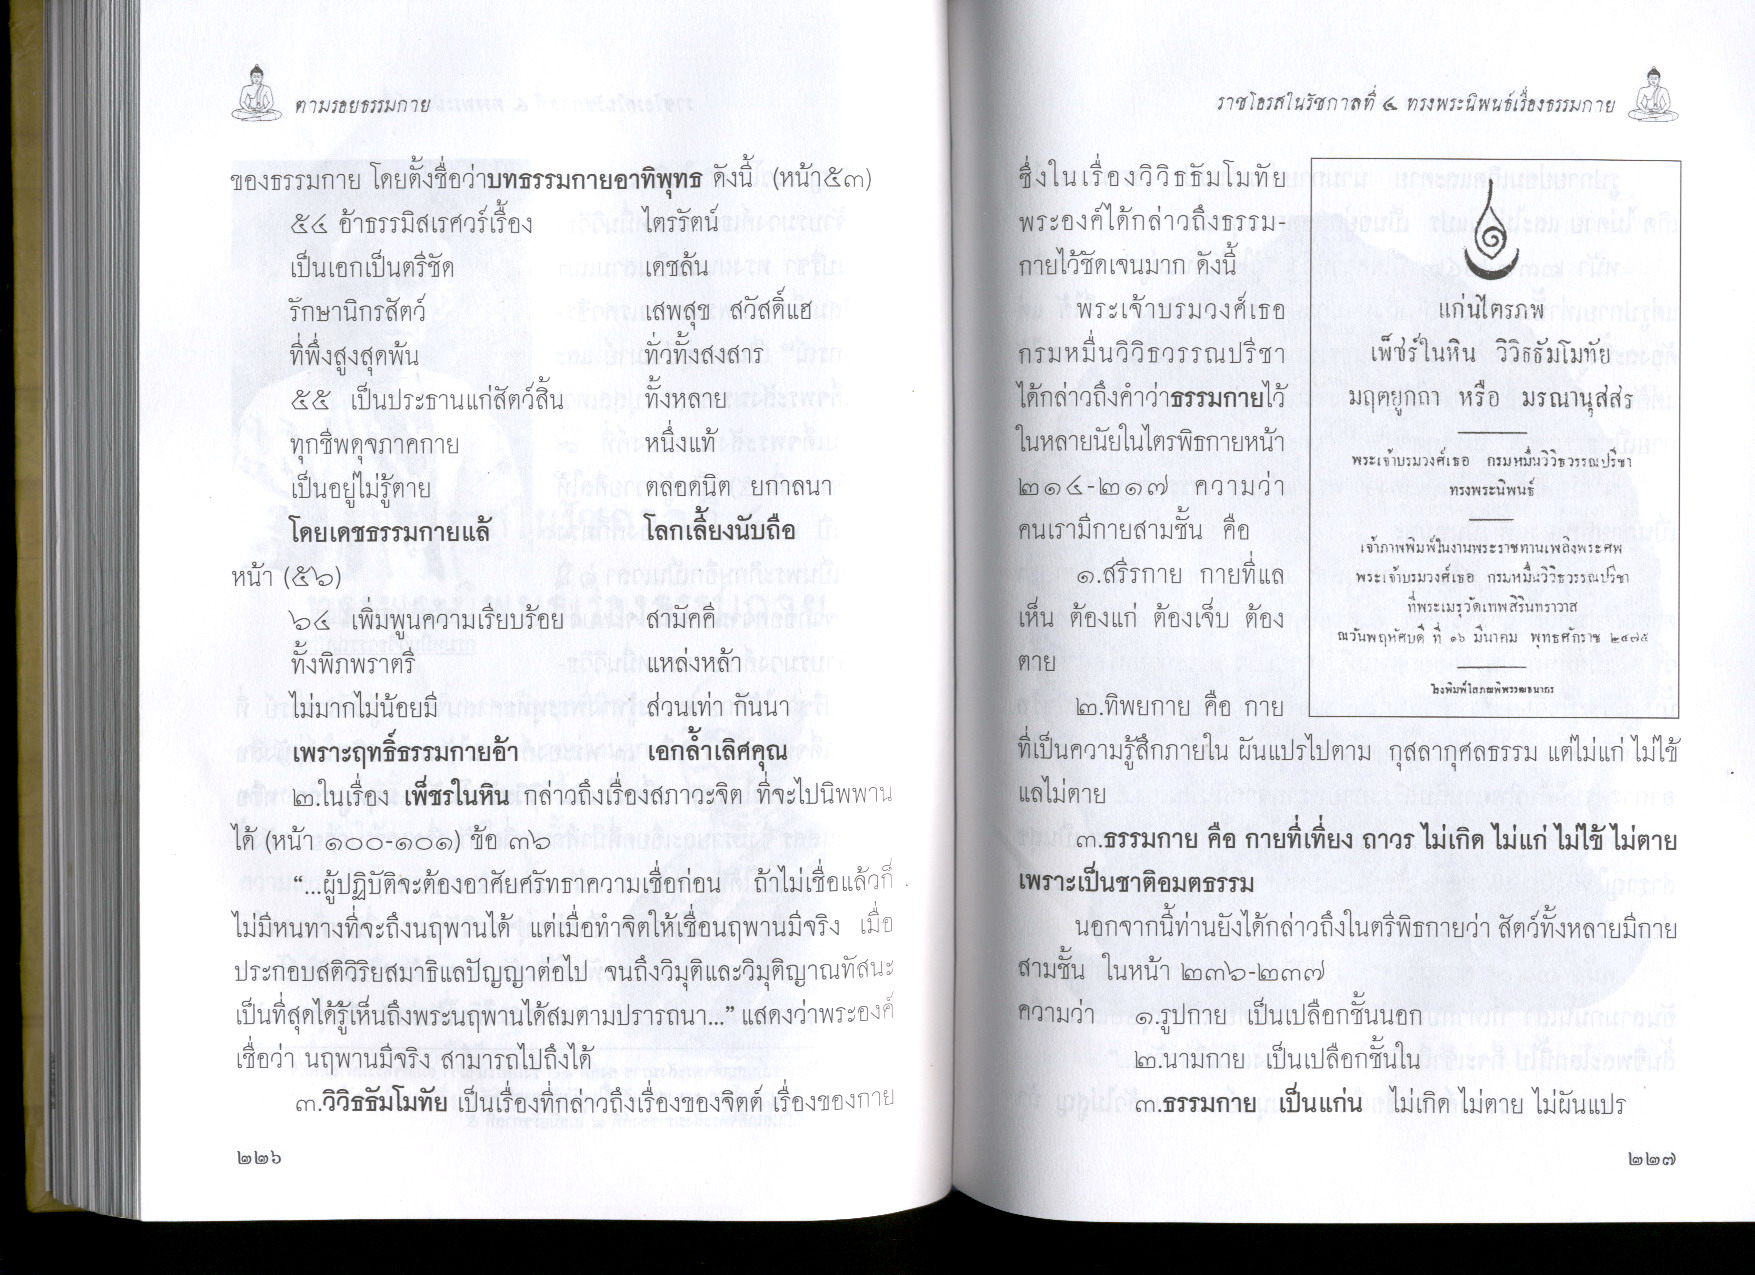 ตามรอยธรรมกาย
ของธรรมกาย โดยตั้งชื่อว่าบทธรรมกายอาทิพุทธ ดังนี้ (หน้า๕๓)
๕๔ อ้าธรรมิสเรศวร์เรื้อง ไตรรัตน์
เป็นเอกเป็นตรีชัด เดชล้น
รักษานิกรสัตว์ เสพสุข สวัสดิ์แฮ
ที่พึ่งสูงสุดพ้น ทั่วทั้งสงสาร
๕๕ เป็นประธานแก่สัตว์สิ้น ทั้งหลาย
ทุกชีพดุจภาคกาย หนึ่งแท้
เป็นอยู่ไม่รู้ตาย ตลอดนิต ยกาลนา
โดยเดชธรรมกายแล้ โลกเลี้ยงนับถือ
หน้า (๕๖)
๖๔ เพิ่มพูนความเรียบร้อย สามัคคี
ทั้งพิภพราตรี แหล่งหล้า
ไม่มากไม่น้อยมี ส่วนเท่า กันนา
เพราะฤทธิ์ธรรมกายอ้า เอกล้ำเลิศคุณ
๒.ในเรื่อง เพ็ชรในหิน กล่าวถึงเรื่องสภาวะจิต ที่จะไปนิพพาน
ได้ (หน้า ๑๐๐-๑๐๑) ข้อ ๓๖
“...ผู้ปฏิบัติจะต้องอาศัยศรัทธาความเชื่อก่อน ถ้าไม่เชื่อแล้วก็
ไม่มีหนทางที่จะถึงนฤพานได้ แต่เมื่อทำจิตให้เชื่อนฤพานมีจริง เมื่อ
ประกอบสติวิริยสมาธิแลปัญญาต่อไป จนถึงวิมุติและวิมุติญาณทัสนะ
เป็นที่สุดได้รู้เห็นถึงพระนฤพานได้สมตามปรารถนา...” แสดงว่าพระองค์
เชื่อว่า นฤพานมีจริง สามารถไปถึงได้
๓.วิวิธธัมโมทัย เป็นเรื่องที่กล่าวถึงเรื่องของจิตต์ เรื่องของกาย
๒๒๖
ราชโอรสในรัชกาลที่ ๔ ทรงพระนิพนธ์เรื่องธรรมกาย
ซึ่งในเรื่องวิวิธธัมโมทัย
พระองค์ได้กล่าวถึงธรรม-
กายไว้ชัดเจนมาก ดังนี้
พระเจ้าบรมวงศ์เธอ
กรมหมื่นวิวิธวรรณปรีชา
ได้กล่าวถึงคำว่าธรรมกายไว้
ในหลายนัยในไตรพิธกายหน้า
๒๑๔-๒๑๗ ความว่า
คนเรามีกายสามชั้น คือ
๑.สรีรกาย กายที่แล
เห็น ต้องแก่ ต้องเจ็บ ต้อง
ตาย
๒.ทิพยกาย คือ กาย
ที่เป็นความรู้สึกภายใน ผันแปรไปตาม กุสลากุศลธรรม แต่ไม่แก่ ไม่ไข้
แลไม่ตาย
๓.ธรรมกาย คือ กายที่เที่ยง ถาวร ไม่เกิด ไม่แก่ ไม่ไข้ ไม่ตาย
เพราะเป็นชาติอมตธรรม
นอกจากนี้ท่านยังได้กล่าวถึงในตรีพิธกายว่า สัตว์ทั้งหลายมีกาย
สามชั้น ในหน้า ๒๓๖-๒๓๗
ความว่า ๑.รูปกาย เป็นเปลือกชั้นนอก
๒.นามกาย เป็นเปลือกชั้นใน
๓.ธรรมกาย เป็นแก่น ไม่เกิด ไม่ตาย ไม่ผันแปร
๒๒๗
แก่นไตรภพ
เพ็ชร์ในหิน วิวิธธัมโมทัย
มฤตยูกถา หรือ มรณานุสสร
พระเจ้าบรมวงศ์เธอ กรมหมื่นวิวิธวรรณปรีชา
ทรงพระนิพนธ์
เจ้าภาพพิมพ์ในงานพระราชทานเพลิงพระศพ
พระเจ้าบรมวงศ์เธอ กรมหมื่นวิวิธวรรณปรีชา
ที่พระเมรุวัดเทพศิรินทราวาส
ณวันพฤหัศบดี ที่ ๑๖ มีนาคม พุทธศักราช ๒๔๗๕
โรงพิมพ์โสภณพิพรรฒธนากร